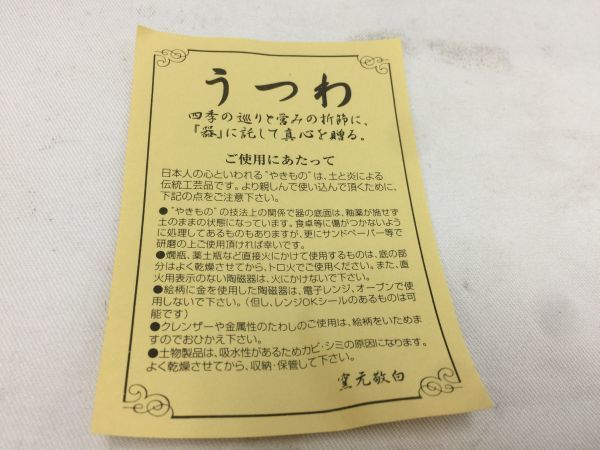 うつわ
四季の巡りと営みの折節に、
「器」に託して真心を贈る。
ご使用にあたって
日本人の心といわれる"やきもの"は、土と炎による
伝統工芸品です。より親しんで使い込んで頂くために、
下記の点をご注意下さい。
●"やきもの"の技法上の関係で器の底面は、釉薬が施せず
土のままの状態になっています。食卓等に傷がつかないよう
に処理してあるものもありますが、更にサンドペーパー等で
研磨の上ご使用頂ければ幸いです。
●燗瓶、薬土瓶など直接火にかけて使用するものは、底の部
分はよく乾燥させてから、トロ火でご使用ください。また、直
火用表示のない陶磁器は、火にかけないで下さい。
●絵柄に金を使用した陶磁器は、電子レンジ、オーブンで使
用しないで下さい。(但し、レンジOKシールのあるものは可
能です)
●クレンザーや金属性のたわしのご使用は、絵柄をいためま
すのでおひかえ下さい。
●土物製品は、吸水性があるためカビ・シミの原因になります。
よく乾燥させてから、収納・保管して下さい。
窯元敬白